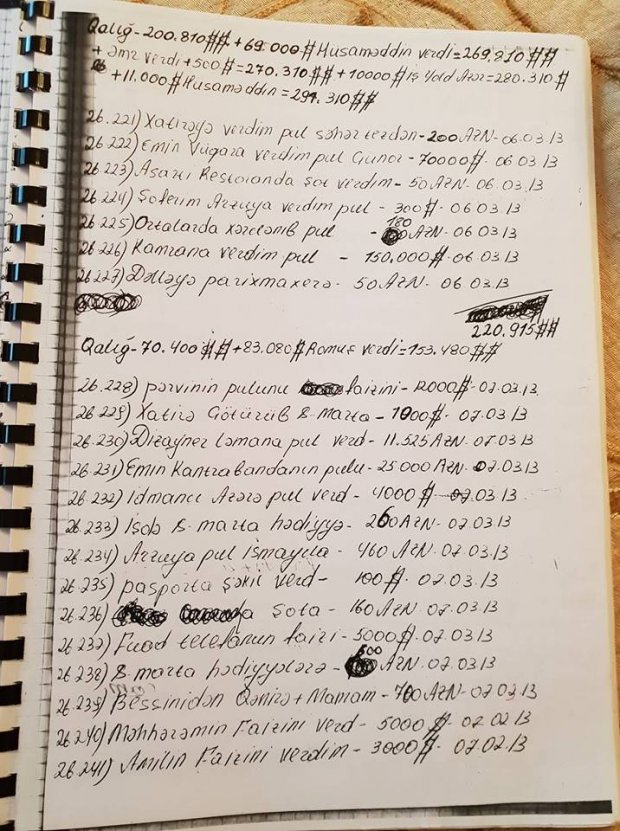 Qalığ-200.810## + 69.000# Husaməddin verdi=269.810##
+ Əmr verdi+500#=270.310##+10000# iş yold Azər=280.310#
+11.000# Husaməddin=291.310##
26.221) Xatirəyə verdim pul səhər tezdən-200 AZN-06.03.13
26.222) Emin Vüqara verdim pul Günor-70000#-06 03 13
26.223) Asarı Restoranda şot verdim-50 AZN-06 03.13
26.224) Şoferim Arzuya verdim pul - 300#-06 03 13
26.225) Ortalarda xərclənib pul - 180 AZN-06 03.13
26.226) Kamrana verdim pul - 150.000#-06.03.13
26.227) Dəlləyə parixmaxerə-50 AZN-06 03.13
220.915##
Qalığ-70.400##+83.080# Ramus verdi=153.480##
26.228) pərvinin pulunu faizini-12000#-07.03.13
26.229) Xatirə Götürüb 8-marta-1000#-07.03 13
26.230) Dizayner Ləmana pul verd-11.525 AZN-07.03 13
26.231) Emin Kantrabandanın pulu-25000 AZN-07.03.13
26.232) Idmançı Azərə pul verd-4000#-07.03.13
26.233) Işçb 8-marta hədiyyə-260 AZN-07.03.13
26.234) Arzuya pul ismayıla-460 AZN-07.03.13
26.235) pasporta şəkil verd-100#-07.03.13
26.236) şota-160 AZN-07.03.13
26.237) Fuad telefonun faizi-5000#-07.03.13
26.238) 8-marta hədiyyələrə-500 AZN-07.03.13
26.239) Bessinidən Qənirə+Mamam-700 AZN-07.02.13
26.240) Məhhərəmin Faizini verd-5000#-07.02.13
26.241) Amilin Faizini verdim-3000#-07.02.13